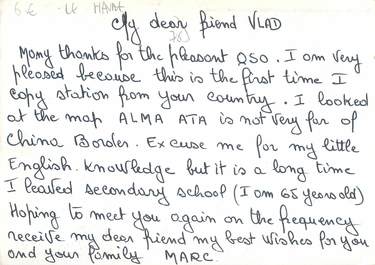 6 € LE HAVRE
My dear friend VLAD
76
Many thanks for the pleasant QSO. I am very
pleased because this is the first time I
copy station from your country. I looked
at the map ALMA ATA is not very far of
China Border. Excuse me for my little
English. Knowledge but it is a long time
I leaved secondary school (I am 65 years old)
Hoping to meet you again on the frequency
receive my dear friend my best wishes for you
and your family MARC.